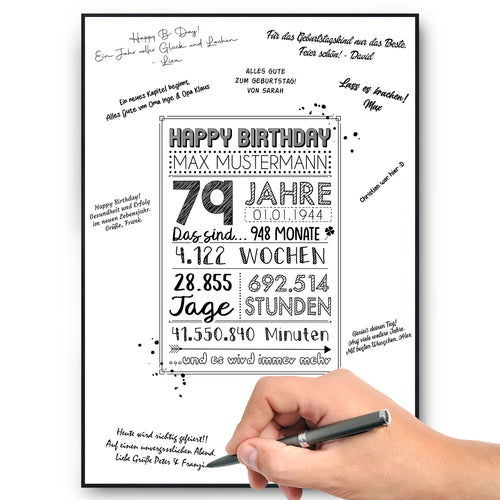 Happy B-Day!
Ein Jahr voller Glück und Lachen
- Lisa
Für das Geburtstagskind nur das Beste.
Feier schön! - David
ALLES GUTE
ZUM GEBURTSTAG!
VON SARAH
Ein neues Kapitel beginnt,
Alles Gute von Oma Inge & Opa Klaus
Lass es krachen!
Max
HAPPY BIRTHDAY
MAX MUSTERMANN
79 JAHRE
01.01.1944
Das sind... 948 MONATE
4.122 WOCHEN
28.855 Tage
692.514 STUNDEN
41.550.840 Minuten
...und es wird immer mehr
Christian war hier :D
Happy Birthday!
Gesundheit und Erfolg
im neuen Lebensjahr.
Grüße, Frank.
Genieß deinen Tag!
Auf viele weitere Jahre.
Mit besten Wünschen, Alex
Heute wird richtig gefeiert!!
Auf einen unvergesslichen Abend.
Liebe Grüße Peter & Franzi